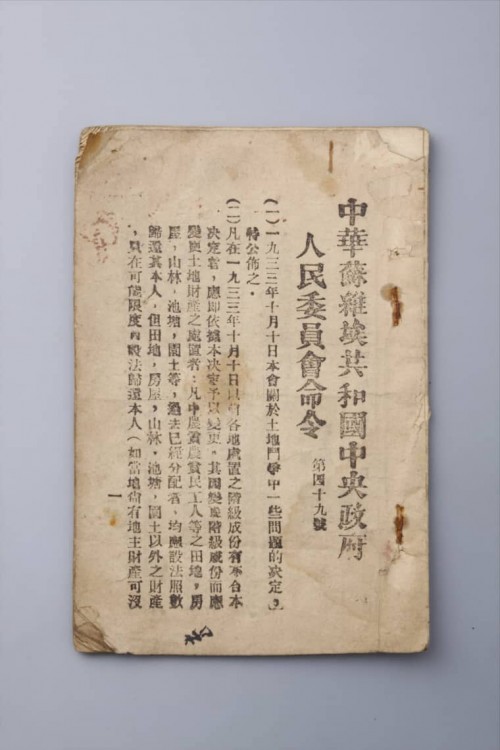 中華蘇維埃共和國中央政府
人民委員會命令
第四十九號
(一)一九三三年十月十日本會關於土地鬥爭中一些問題的决定,
特公佈之。
(二)凡在一九三三年十月十日以前各地處置之階級成份有不合本
决定者,應即依據本决定予以變更。其因變更階級成份而應
變更土地財產之處置者:凡中農貧農貧民工人等之田地,房
屋,山林,池塘,園土等,過去已經分配者,均應設法照數
歸還其本人,但田地,房屋,山林,池塘,園土以外之財產
,只在可能限度內設法歸還本人(如當地尚有地主財產可沒
一